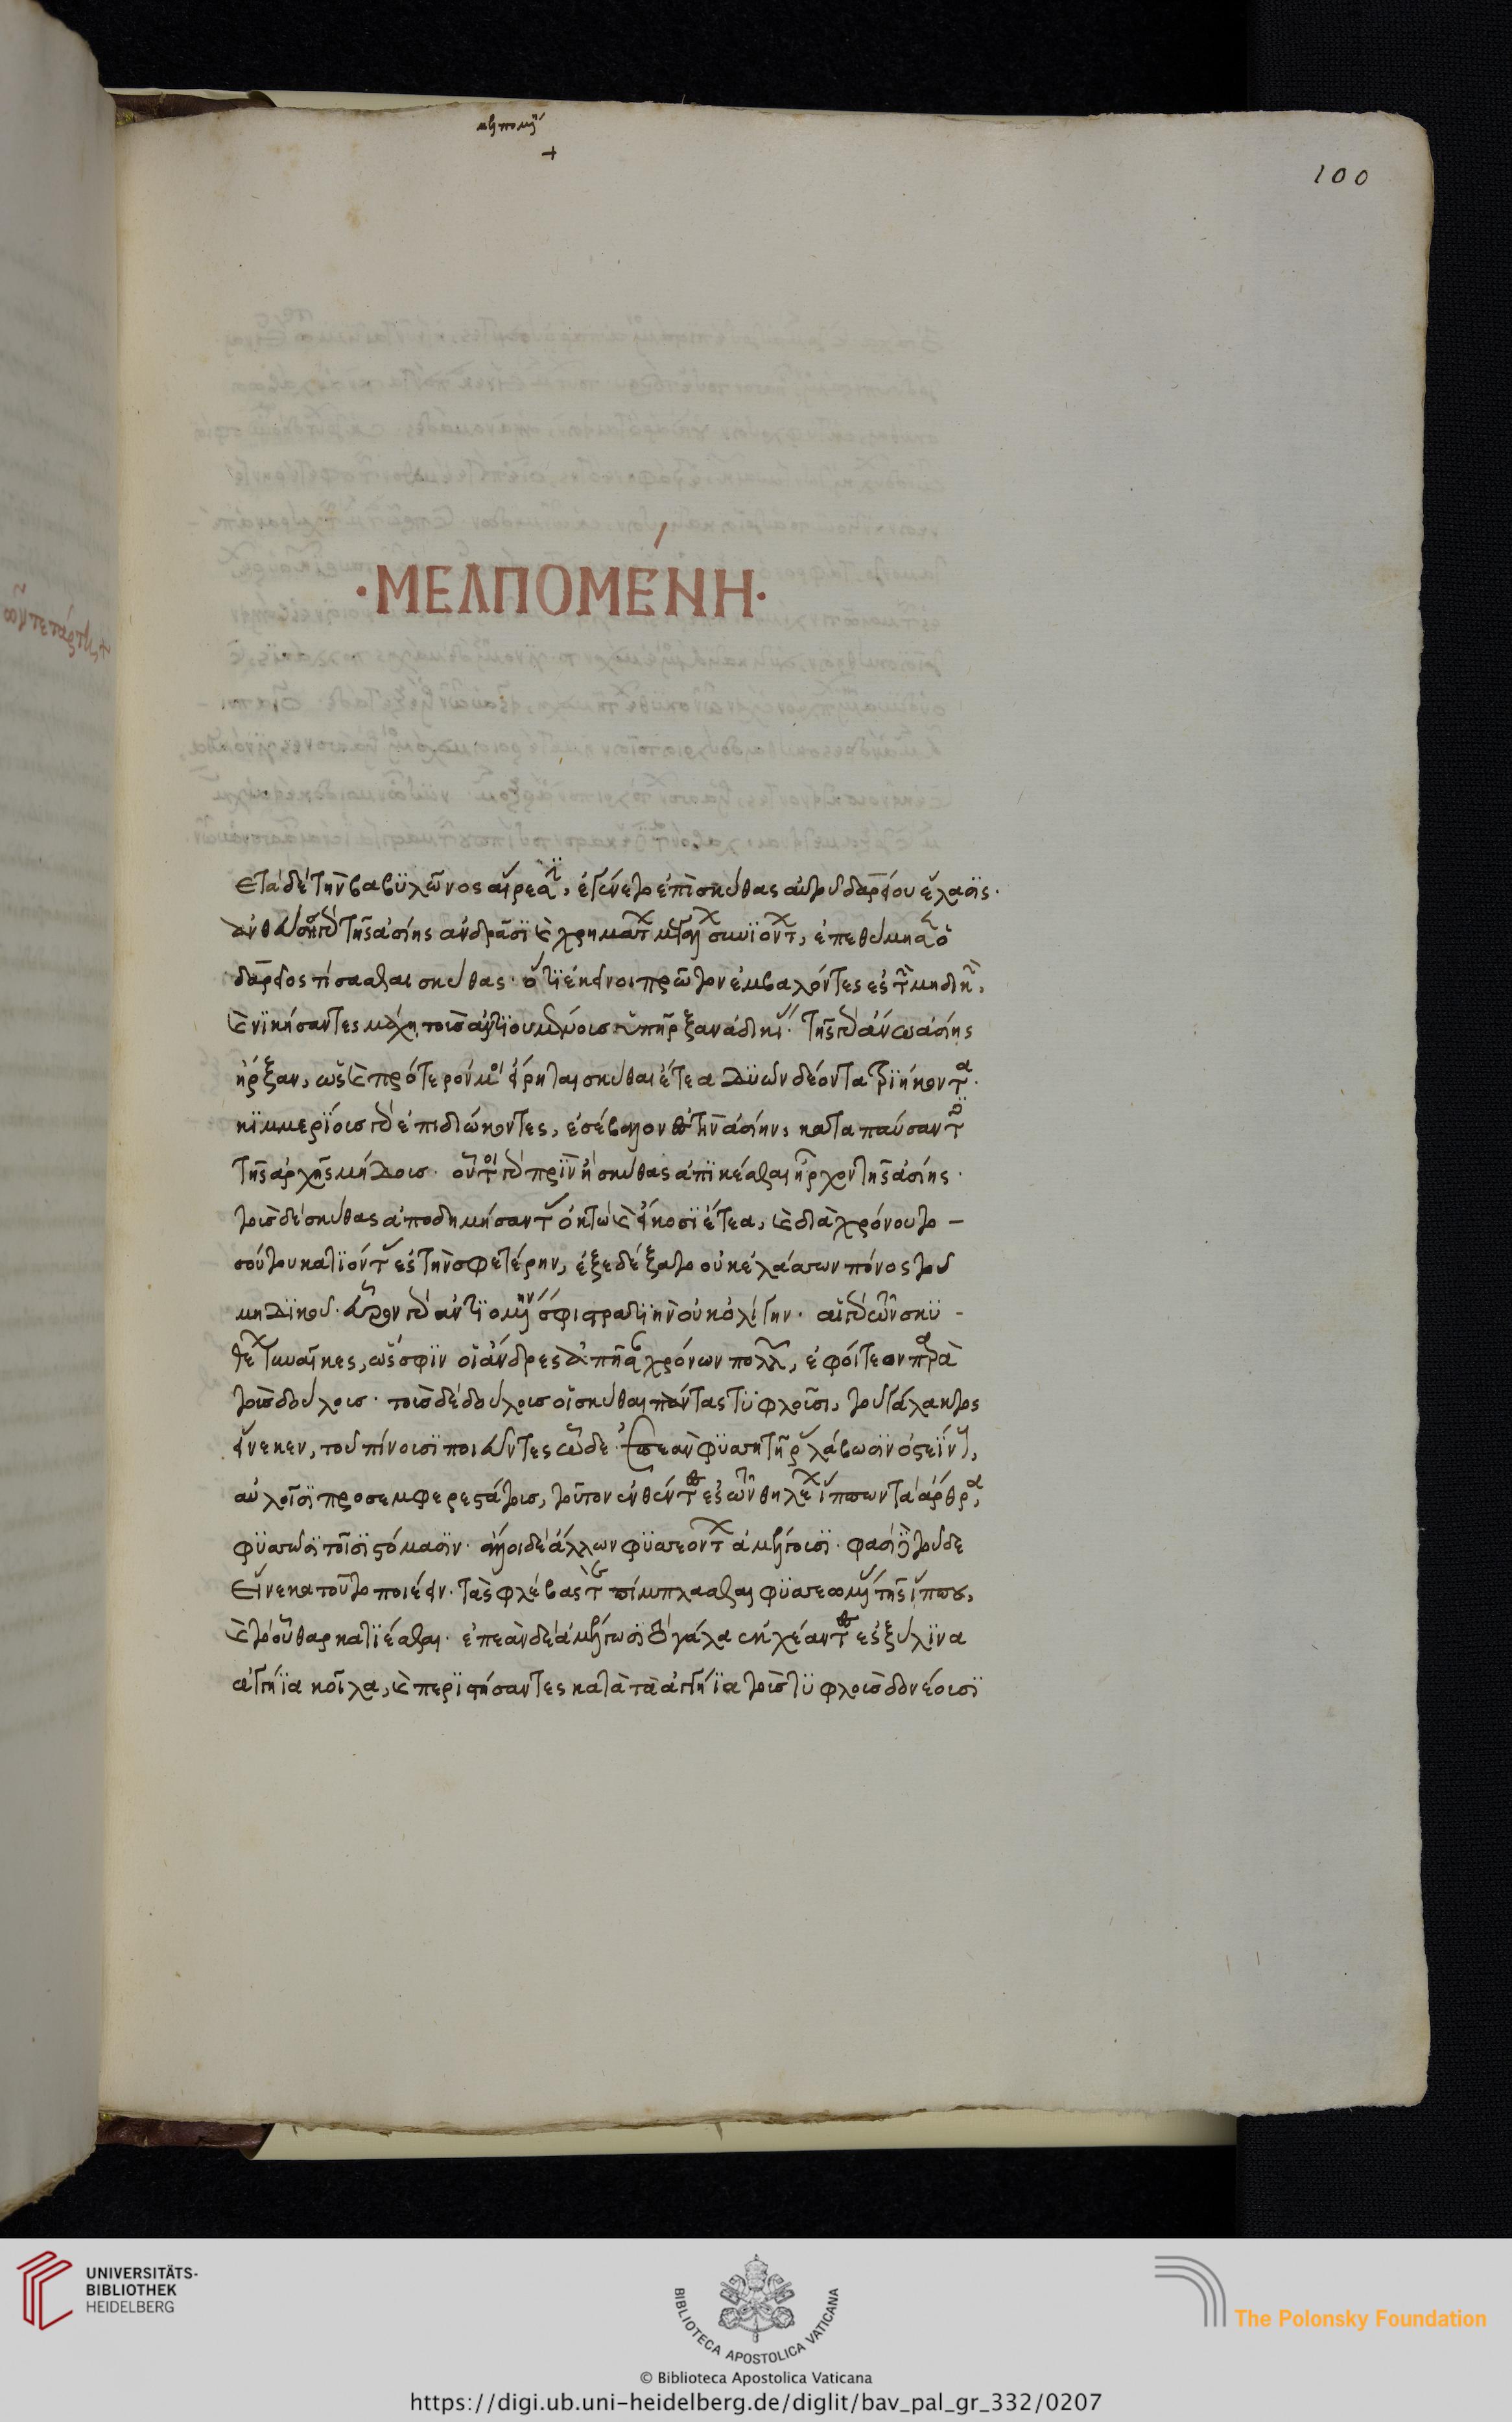 μελπομέν
+
100
·ΜΕΛΠΟΜΈΝΗ·
ετὰ δὲ τὴν βαβϋλῶνος αἵρεσϊν, ἐγένετο ἐπὶ σκύθας αὐτοῦ δαρείου ἔλασϊς.
ἀνθεύσης γὰρ τῆς ἀσίης ἀνδράσϊ καὶ χρημάτων μεγάλων συνϊόντων, ἐπεθύμησεν ὁ
δαρεῖος τίσασθαι σκύθας· ὅτϊ ἐκεῖνοι πρῶτον ἐμβαλόντες ἐς τὴν μηδικὴν,
καὶ νϊκήσαντες μάχῃ τοὺς ἀντϊουμένους ὑπῆρξαν ἀδικίης· τῆς γὰρ ἄνω ἀσίης
ἦρξαν, ὡς καὶ πρότερόν μοι εἴρηται σκύθαι ἔτεα δϋῶν δέοντα τρϊήκοντα.
κϊμμερϊόυς γὰρ ἐπιδιώκοντες, ἐσέβαλον ἐς τὴν ἀσίην, καταπαύσαντες
τῆς ἀρχῆς μήδους· οὗτοι γὰρ πρϊν ἢ σκύθας ἀπϊκέσθαι ἦρχον τῆς ἀσίης.
τοὺς δὲ σκύθας ἀποδημήσαντας ὀκτὼ καὶ εἴκοσϊ ἔτεα, καὶ διὰ χρόνου το-
σούτου κατϊόντας ἐς τὴν σφετέρην, ἐξεδέξατο οὐκ ἐλάσσων πόνος τοῦ
μηδϊκοῦ. εὗρον γὰρ ἀντϊομένην σφι στρατϊὴν οὐκ ὀλίγην. αἱ γὰρ τῶν σκϋ-
θέων γυναῖκες, ὥς σφϊν οἱ ἄνδρες ἀπῆσαν χρόνων πολλὸν, ἐφοίτεον παρὰ
τοὺς δούλους· τοὺς δὲ δούλους οἱ σκύθαι πάντας τϋφλοῦσι, τοῦ γάλακτος
εἵνεκεν, τοῦ πίνουσϊ ποιεῦντες ὧδε· ἐπεὰν φϋσητῆρας λάβωσϊν ὀστεϊνους,
αὐλοῖσϊ προσεμφερεστάτους, τούτους ἐνθέντες ἐς τῶν θηλέων ἵππων τὰ ἄρθρα,
φϋσῶσϊ τοῖσϊ στόμασϊν· ἄλλοι δὲ ἄλλων φϋσεόντων ἀμέλγουσϊ. φασὶ δὲ τοῦδε
εἵνεκα τοῦτο ποιέειν. τὰς φλέβας τε πίμπλασθαι φϋσεομένας τῆς ἵππου,
καὶ τὸ οὖθαρ κατϊέσθαι· ἐπεὰν δὲ ἀμέλξωσϊ τὸ γάλα ἐνχέαντες ἐς ξύλϊνα
ἀγγήϊα κοῖλα, καὶ περϊστήσαντες κατὰ τὰ ἀγγήϊα τοὺς τϋφλοὺς δονέουσϊ
UNIVERSITÄTS-
BIBLIOTHEK
HEIDELBERG
BIBLIOTECA APOSTOLICA VATICANA
The Polonsky Foundation
© Biblioteca Apostolica Vaticana
https://digi.ub.uni-heidelberg.de/diglit/bav_pal_gr_332/0207